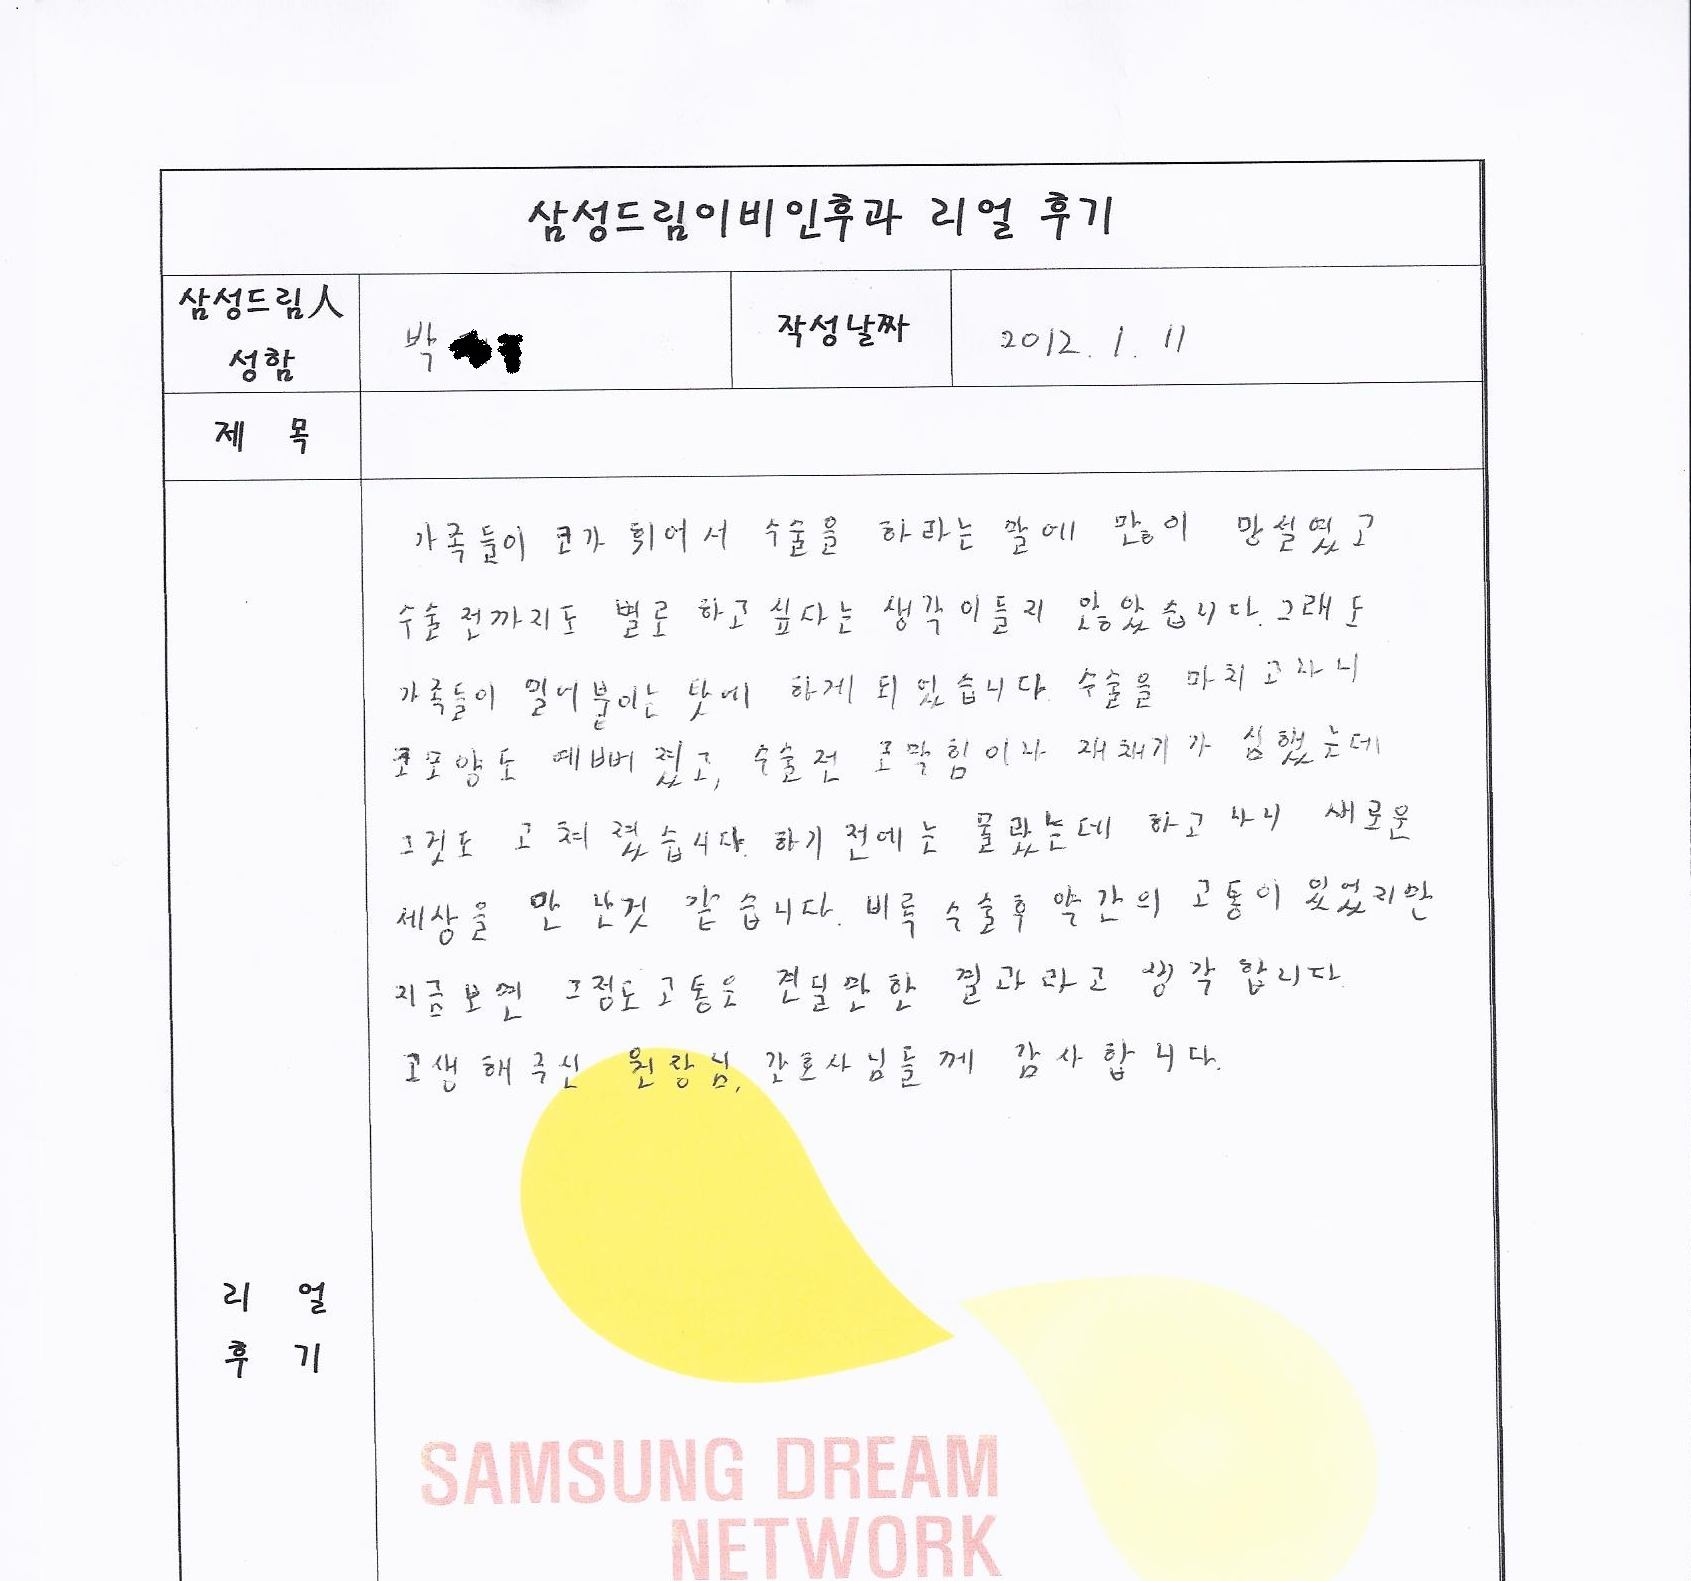 삼성드림이비인후과 리얼 후기
삼성드림人
성함
박
작성날짜
2012. 1. 11
제 목
가족들이 코가 휘어서 수술을 하라는 말에 많이 망설였고
수술전까지도 별로 하고싶다는 생각이들지 않았습니다. 그래도
가족들이 밀어붙이는 탓에 하게 되었습니다. 수술을 마치고나니
코모양도 예뻐졌고, 수술전 코막힘이나 재채기가 심했는데
그것도 고쳐졌습니다. 하기전에는 몰랐는데 하고나니 새로운
세상을 만난것 같습니다. 비록 수술후 약간의 고통이 있었지만
지금보면 그정도고통은 견딜만한 결과라고 생각합니다.
고생해주신 원장님, 간호사님들께 감사합니다.
리 얼
후 기
SAMSUNG DREAM
NETWORK